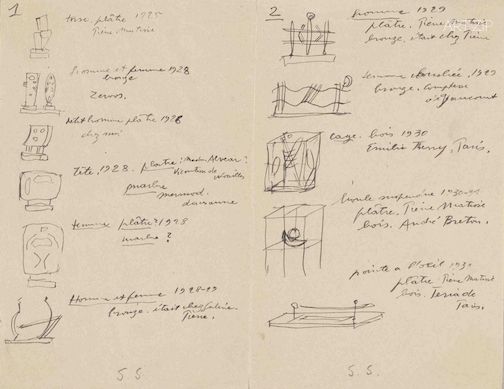 1
torse, plâtre 1925
Pierre Matisse
homme et femme 1928
bronze
Zervos.
petit homme plâtre 1926
chez moi
Tête. 1928. plâtre: Madm Alvear?
Vicomtesse de Noailles
marbre
femme plâtre? 1928
marbre?
Homme et femme 1928-29
bronze. était chez Galerie
Pierre.
S.S.
2
homme 1929
plâtre. Pierre Matisse
bronze. était chez Pierre
femme couchée. 1929
bronze.
cage. bois 1930
Emilio Terry, Paris.
boule suspendue 1930-31
plâtre. Pierre Matisse
bois. André Breton.
pointe à l'oeil 1931
plâtre Pierre Matisse
bois. Teriade
Paris.
S.S.